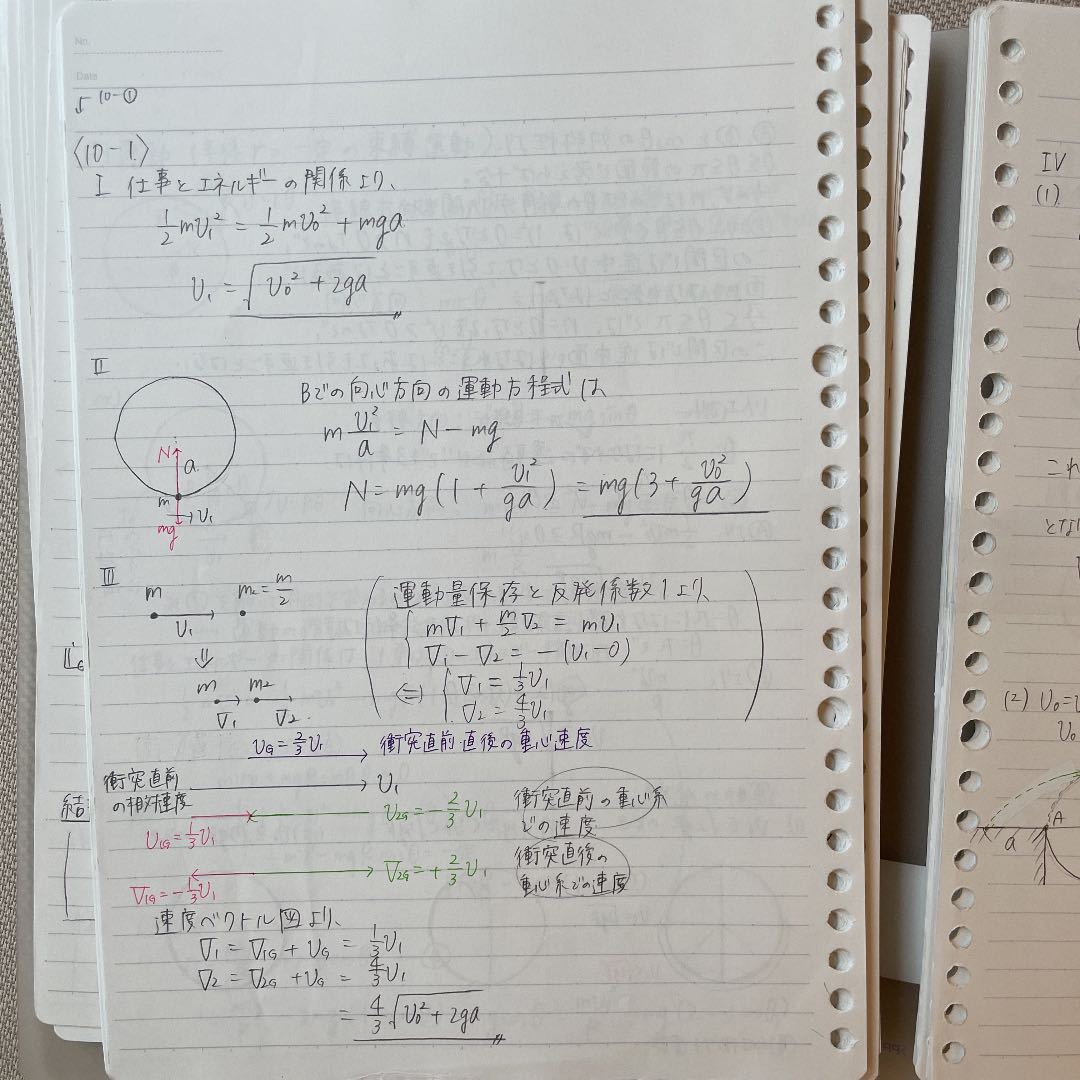 No.
Date
5 10-①
〈10-1〉
I 仕事とエネルギーの関係より、
½mv₁² = ½mv₀² + mga
v₁ = √(v₀² + 2ga)
II
Bでの向心方向の運動方程式は
m v₁²/a = N - mg
N = mg(1 + v₁²/ga) = mg(3 + v₀²/ga)
N
a
m
v₁
mg
III
m m₂ = m/2
v₁
⇓
m m₂
V₁ V₂
運動量保存と反発係数1より、
mV₁ + m/2 V₂ = mv₁
V₁ - V₂ = -(v₁ - 0)
⇔ V₁ = ⅓v₁
V₂ = 4/3 v₁
v_G = ⅔v₁ 衝突直前・直後の重心速度
衝突直前の相対速度 v₁
v₁G = ⅓v₁ v₂G = -⅔v₁
衝突直前の重心系
での速度
V₁G = -⅓v₁ V₂G = +⅔v₁
衝突直後の
重心系での速度
速度ベクトル図より、
V₁ = V₁G + v_G = ⅓v₁
V₂ = V₂G + v_G = 4/3 v₁
= 4/3 √(v₀² + 2ga)
結
IV
(1)
これ
とな
(2) v₀ =
v₀
A
a